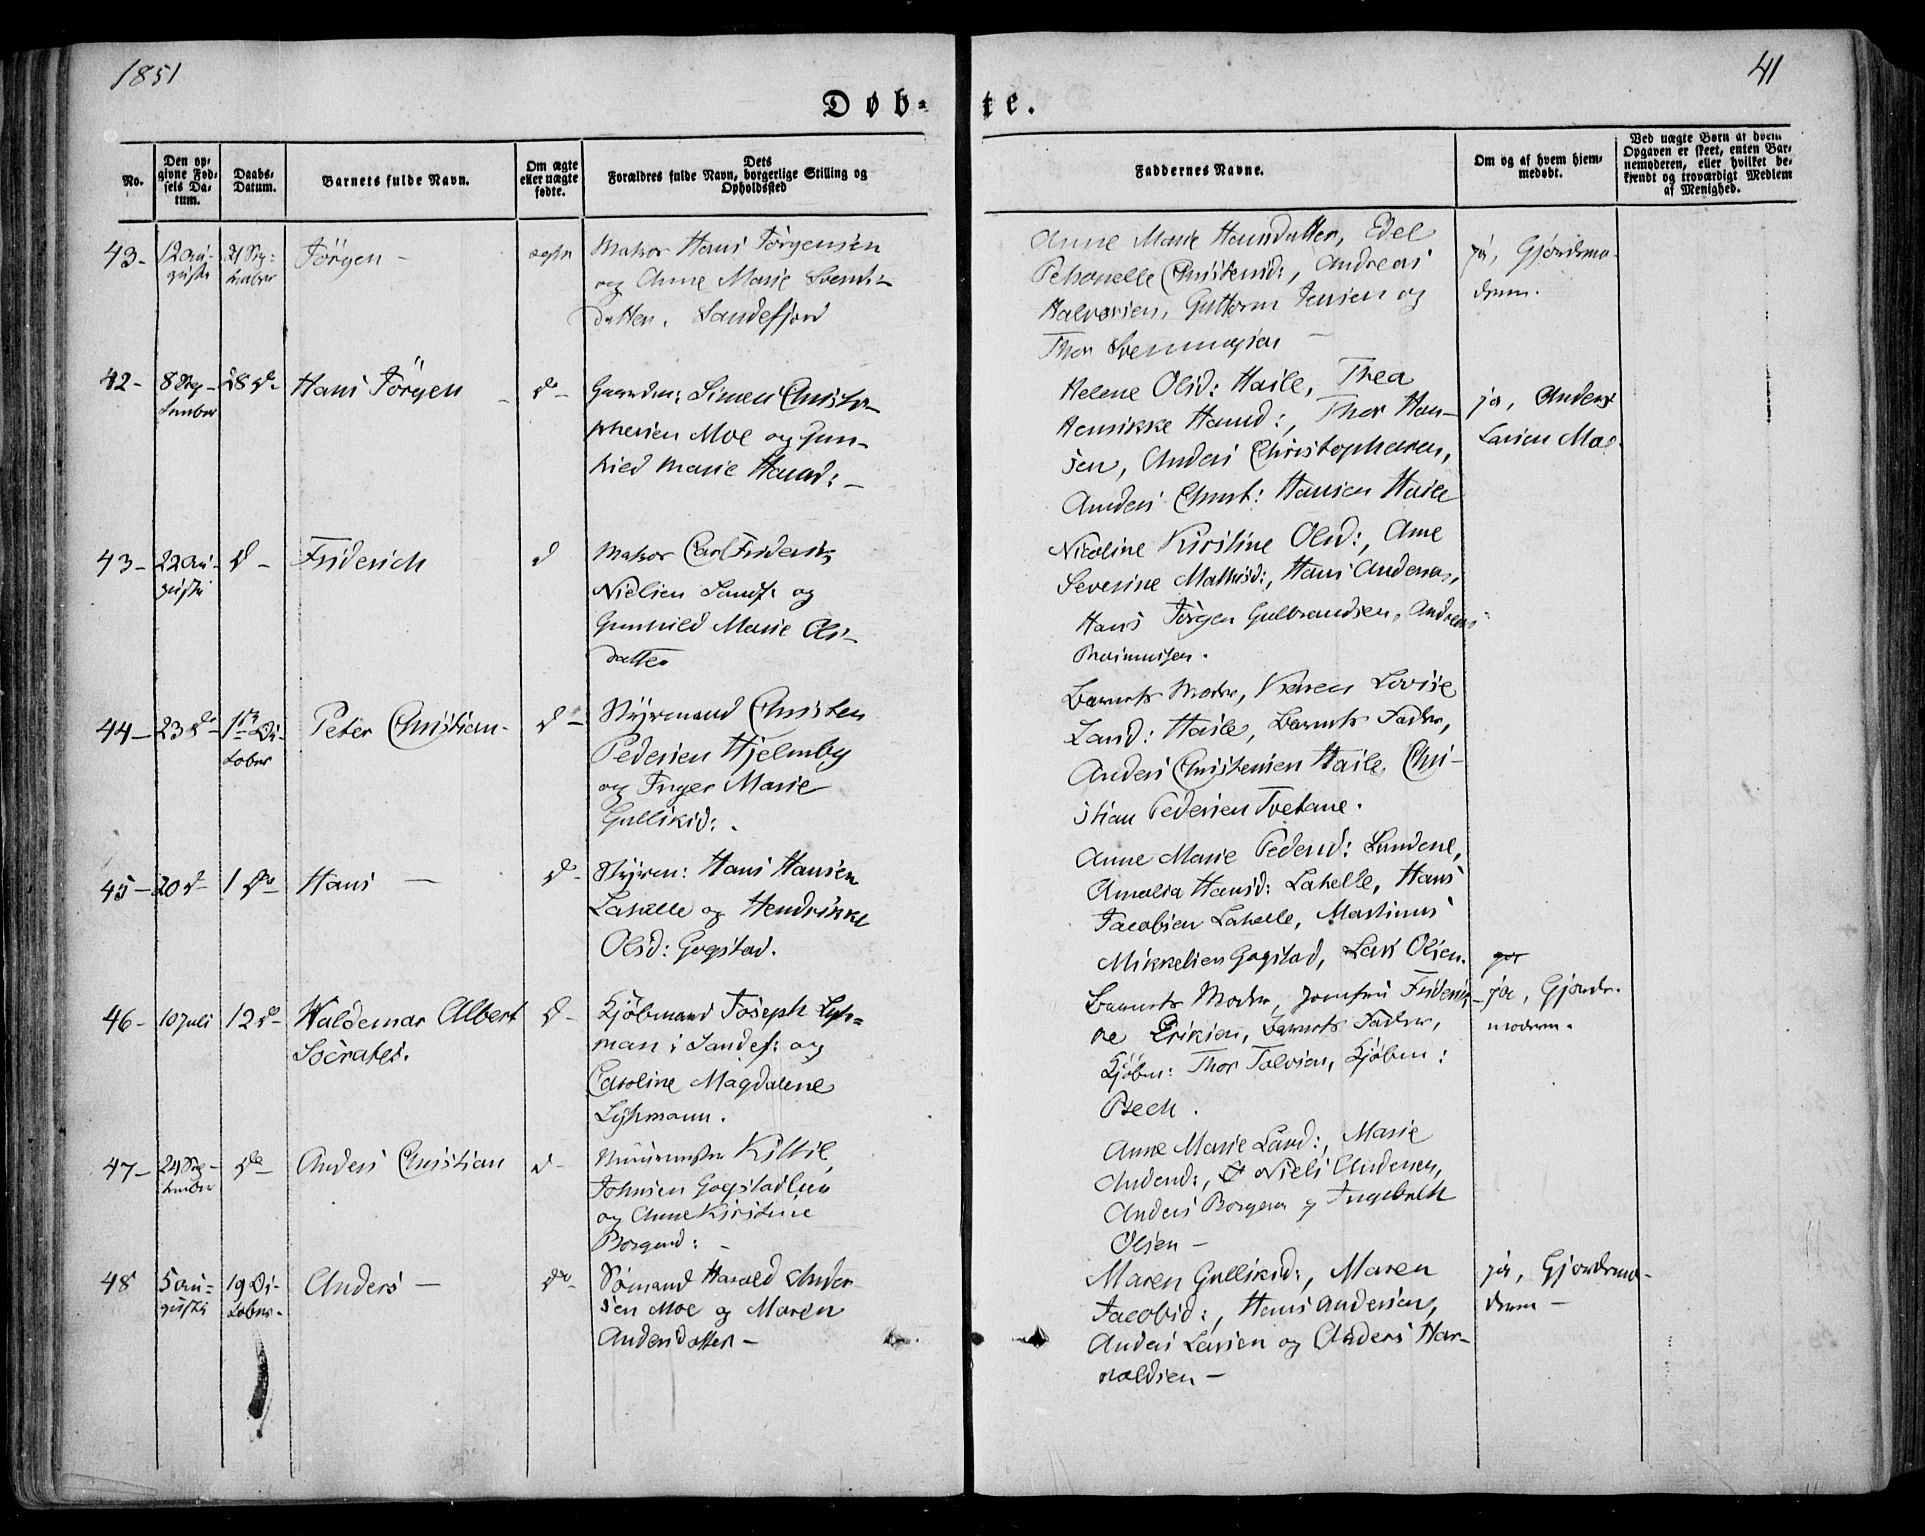 1851
41
Døb-
te.
No.
Den op-
givne Fød-
sels Da-
tum.
Daabs-
Datum.
Barnets fulde Navn.
Om ægte
eller uægte
fødte.
Dets
Forældres fulde Navn, borgerlige Stilling og
Opholdssted
Faddernes Navne.
Om og af hvem hjem-
medøbt.
Ved uægte Børn af hvem
Opgaven er skeet, enten Bar-
nemoderen, eller hvilket be-
kjendt og troværdigt Medlem
af Menighed.
43-
12 Au-
gusti
21 Sep-
tember
Jörgen -
ægte
Matros Hans Jörgensen
og Anne Marie Svends-
datter. Sandefjord
Anne Marie Hansdatter, Edel
Petronelle Christensd:, Andreas
Halvorsen, Guttorm Jensen og
Thor Svenungsen -
ja, Gjordmo-
dren.
42-
8 Sep-
tember
28 do
Hans Jörgen -
do -
Gaardm: Simen Christo-
phersen Moe og Gun-
hild Marie Hansd: -
Helene Olsd: Hasle, Thea
Henrikke Hansd:, Thor Han-
sen, Anders Christophersen,
Anders Christ: Hansen Hasle
ja, Anders
Larsen Moe
43-
22 Au-
gusti
do -
Friderich
do
Matros Carl Friderik
Nielsen Sandf: og
Gunhild Marie Ols-
datter
Nicoline Kirstine Olsd:, Anne
Severine Mathisd:, Hans Andersen,
Hans Jörgen Gulbrandsen, Andreas
Rasmussen.
44-
23 do
1ste Oc-
tober
Peter Christian -
do -
Styrmand Christen
Pedersen Hjelmby
og Inger Marie
Gulliksd: .
Barnets Moder, Karen Lovise
Larsd: Hasle, Barnets Fader,
Anders Christensen Hasle, Chri-
stian Pedersen Tvetane.
45-
20 do
1 do
Hans -
do -
Styrm: Hans Hansen
Lahelle og Hendrikke
Olsd: Gogstad.
Anne Marie Pedersd: Sundene,
Amalia Hansd: Lahelle, Hans
Jacobsen Lahelle, Martinus
Mikkelsen Gogstad, Lars Olsen.
46-
10 Juli
12 do
Waldemar Albert
Socrates.
do -
Kjöbmand Joseph Lyh-
man i Sandef: og
Caroline Magdalene
Lyhmann.
Barnets Moder, Jomfru Frideric-
ke Eriksen, Barnets Fader,
Kjöbm: Thor Tolvsen, Kjöbm:
Bech.
ja, Gjorde-
modren.
47-
21 Sep-
tember
do
Anders Christian
do -
Kittil
Johnsen Gogstad
og Anne Kirstine
Borgersd: -
Anne Marie Larsd:, Marie
Andersd:, Niels Andersen,
Anders Borgersen og Ingebreth
Olsen -
48
5 Au-
gusti
19 Oc-
tober -
Anders -
do -
Sömand Harald Ander
sen Moe og Maren
Andersdatter -
Maren Gulliksd:, Maren
Jacobsd:, Hans Andersen,
Anders Larsen og Anders Har-
raldsen -
ja, Gjordemo-
dren -